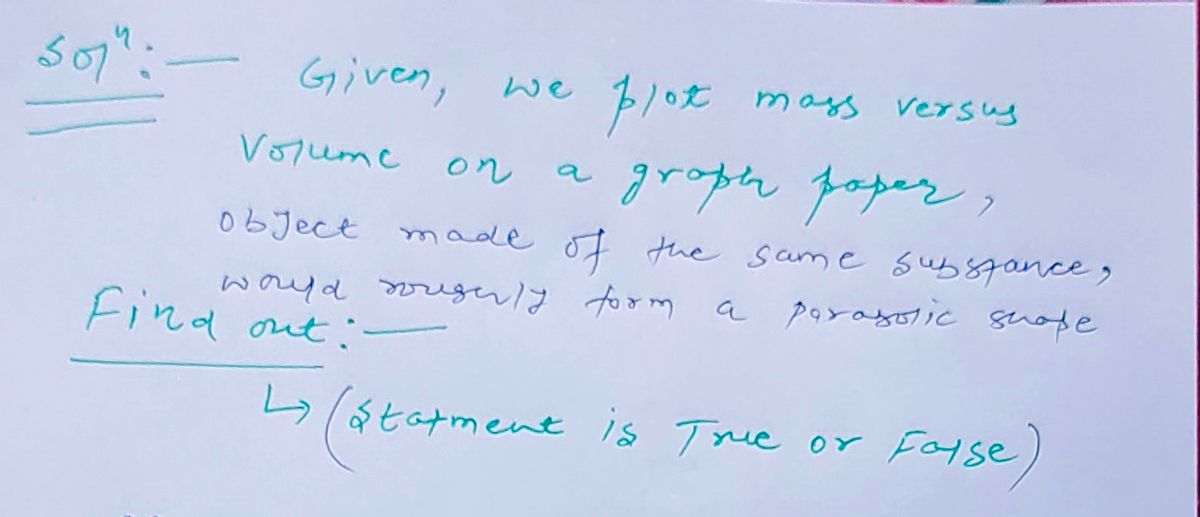 Solⁿ:—
Given, we plot mass versus
Volume on a graph paper,
object made of the same substance,
would roughly form a parabolic shape
Find out:—
↳ (Statment is True or False)